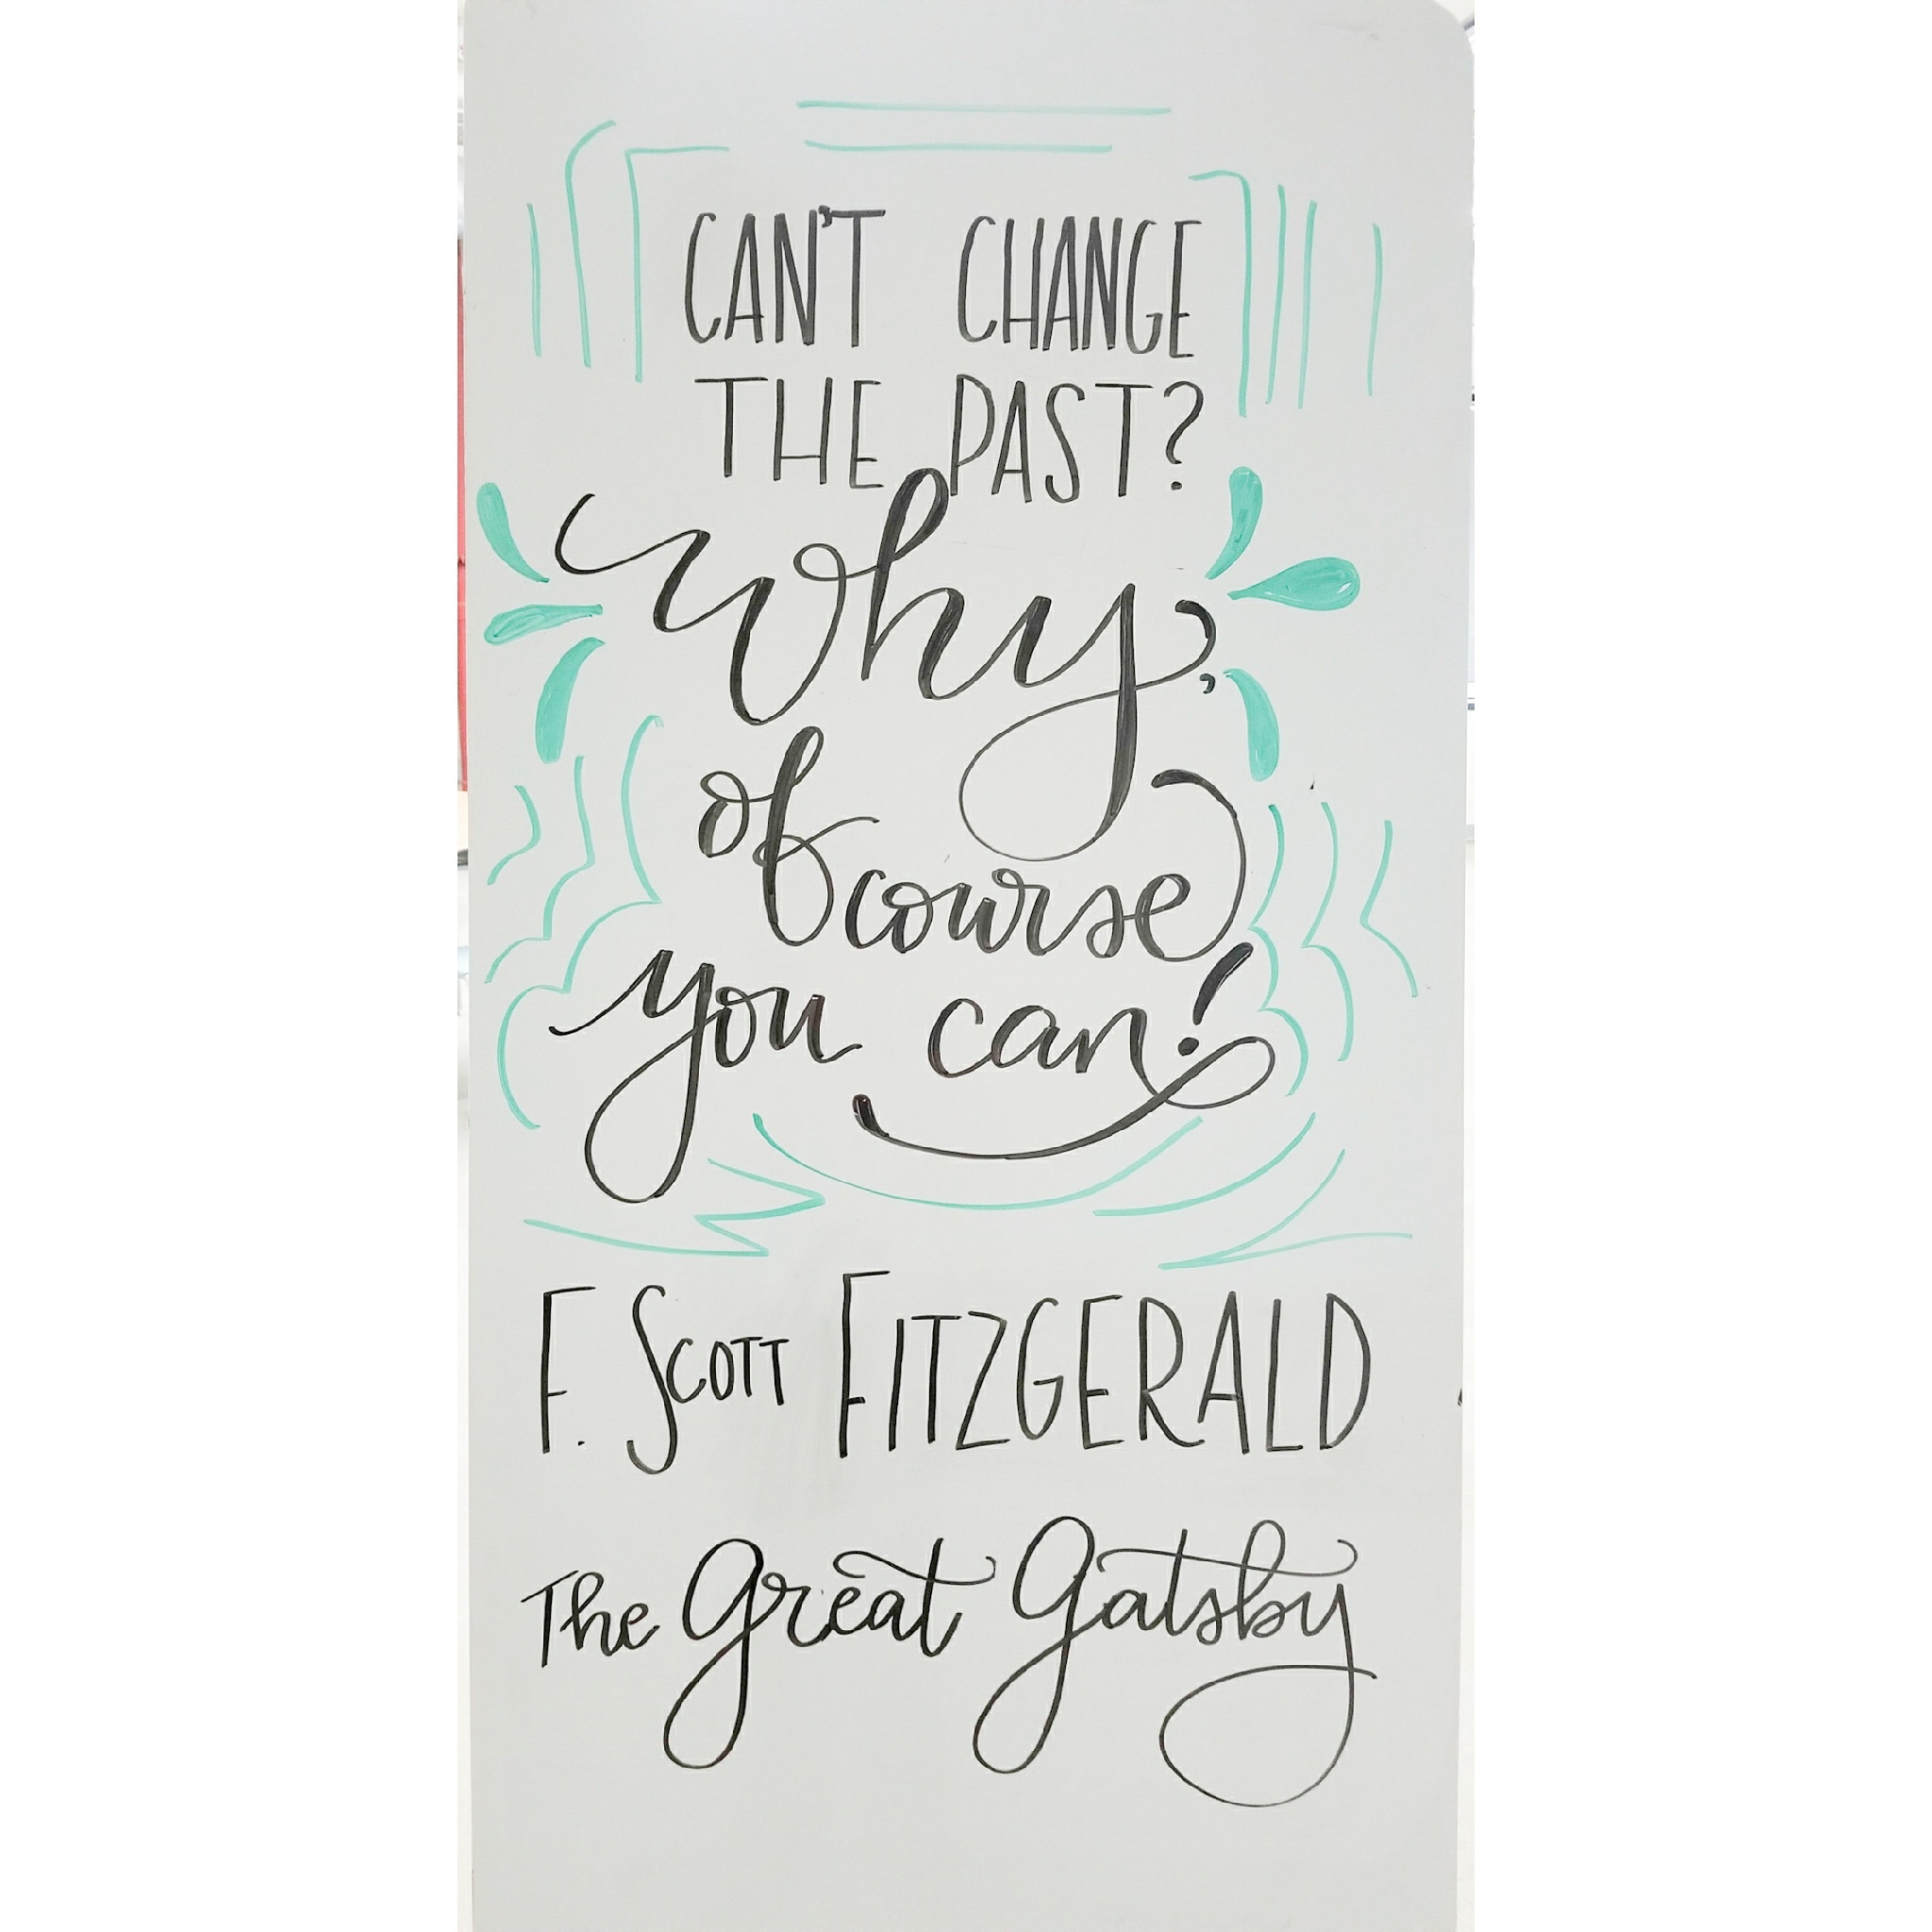 CAN'T CHANGE
THE PAST?
Why,
of course
you can!
F. SCOTT FITZGERALD
The Great Gatsby